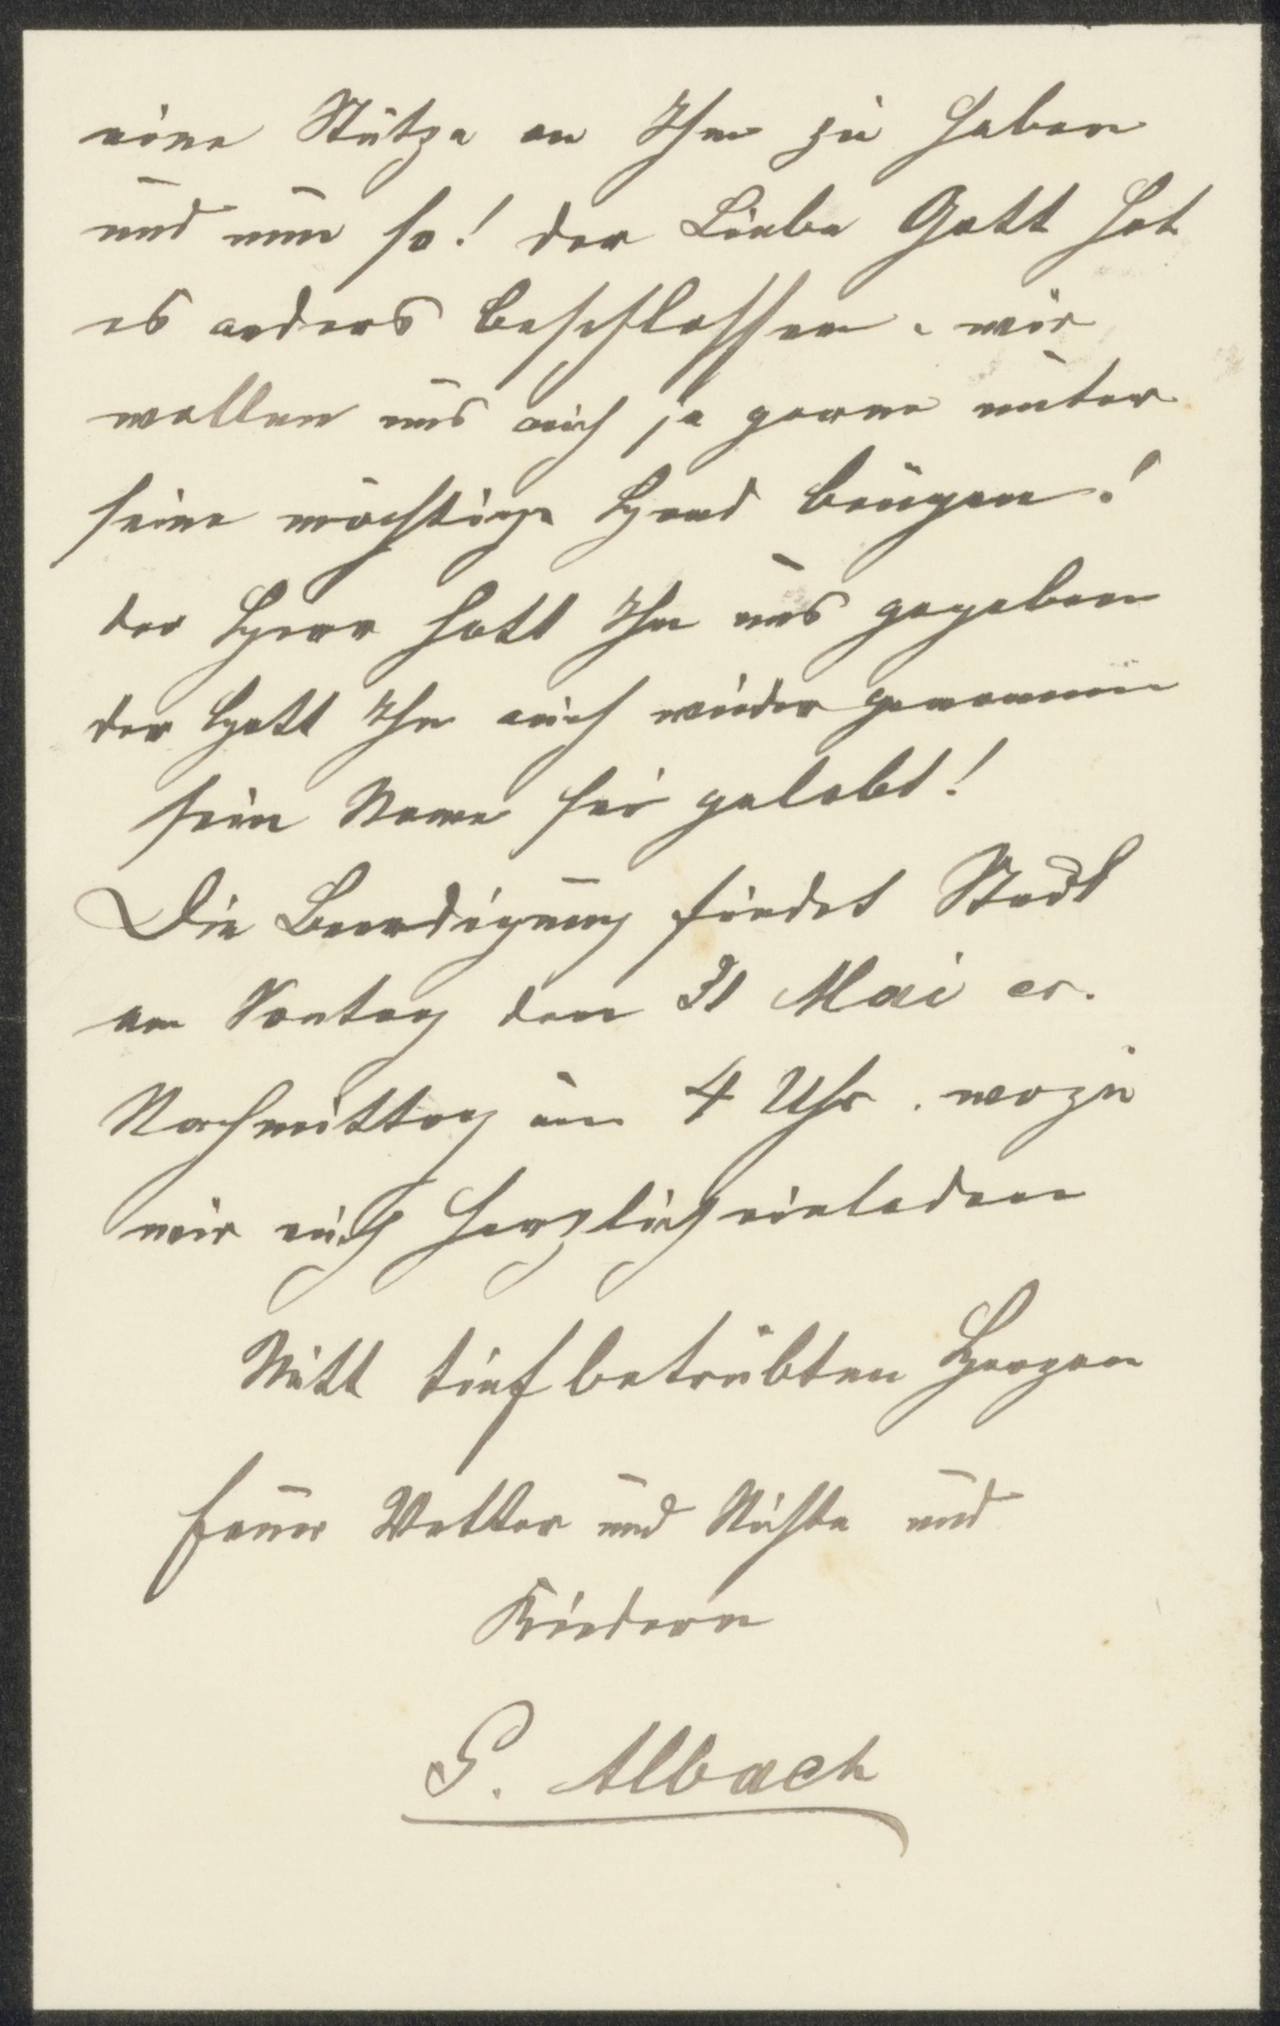 eine Stütze an Ihm zu haben
und nun so! der Liebe Gott hat
es anders beschlossen. wir
wollen uns auch ja gerne unter
seine mächtige Hand beugen!
der Herr hatt Ihn uns gegeben
der Hatt Ihn auch wieder genommen
sein Name sei gelobt!
Die Beerdigung findet Stadt
am Sontag den 31 Mai cr.
Nachmittag um 4 Uhr. wozu
wir euch herzlich einladen
Mitt tief betrübten Herzen
Euer Vetter und Nichte und
Kindern
G. Albach